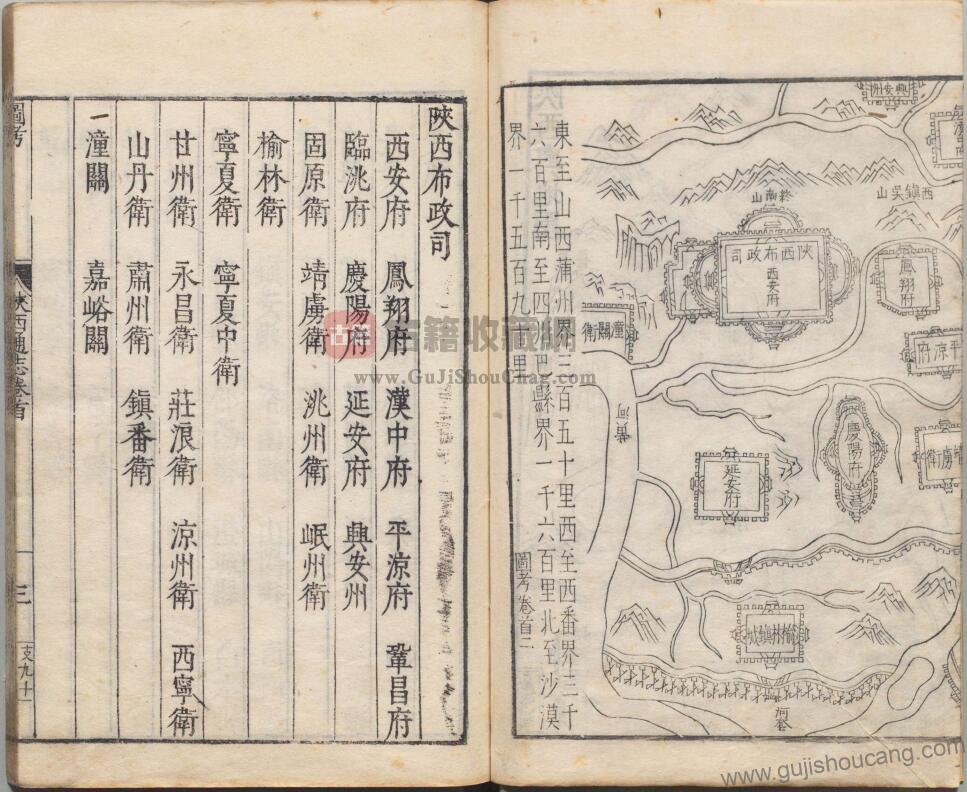 興安州
漢
終南山
西鎮吳山
陝西布政司
西安府
鳳翔府
潼關衛
平涼府
黃河
延安府
慶陽府
虜衛
榆林鎮城
河套
東至山西蒲州界三百五十里西至西番界三千
六百里南至四川巴縣界一千六百里北至沙漠
界一千五百九十里
圖考 卷首 二
陝西布政司
西安府 鳳翔府 漢中府 平涼府 鞏昌府
臨洮府 慶陽府 延安府 興安州
固原衛 靖虜衛 洮州衛 岷州衛
榆林衛
寧夏衛 寧夏中衛
甘州衛 永昌衛 莊浪衛 涼州衛 西寧衛
山丹衛 肅州衛 鎮番衛
潼關 嘉峪關
圖考 陝西通志卷首 三 支九十
古籍 古籍收藏網
www.GuJiShouCang.com
www.gujishoucang.com